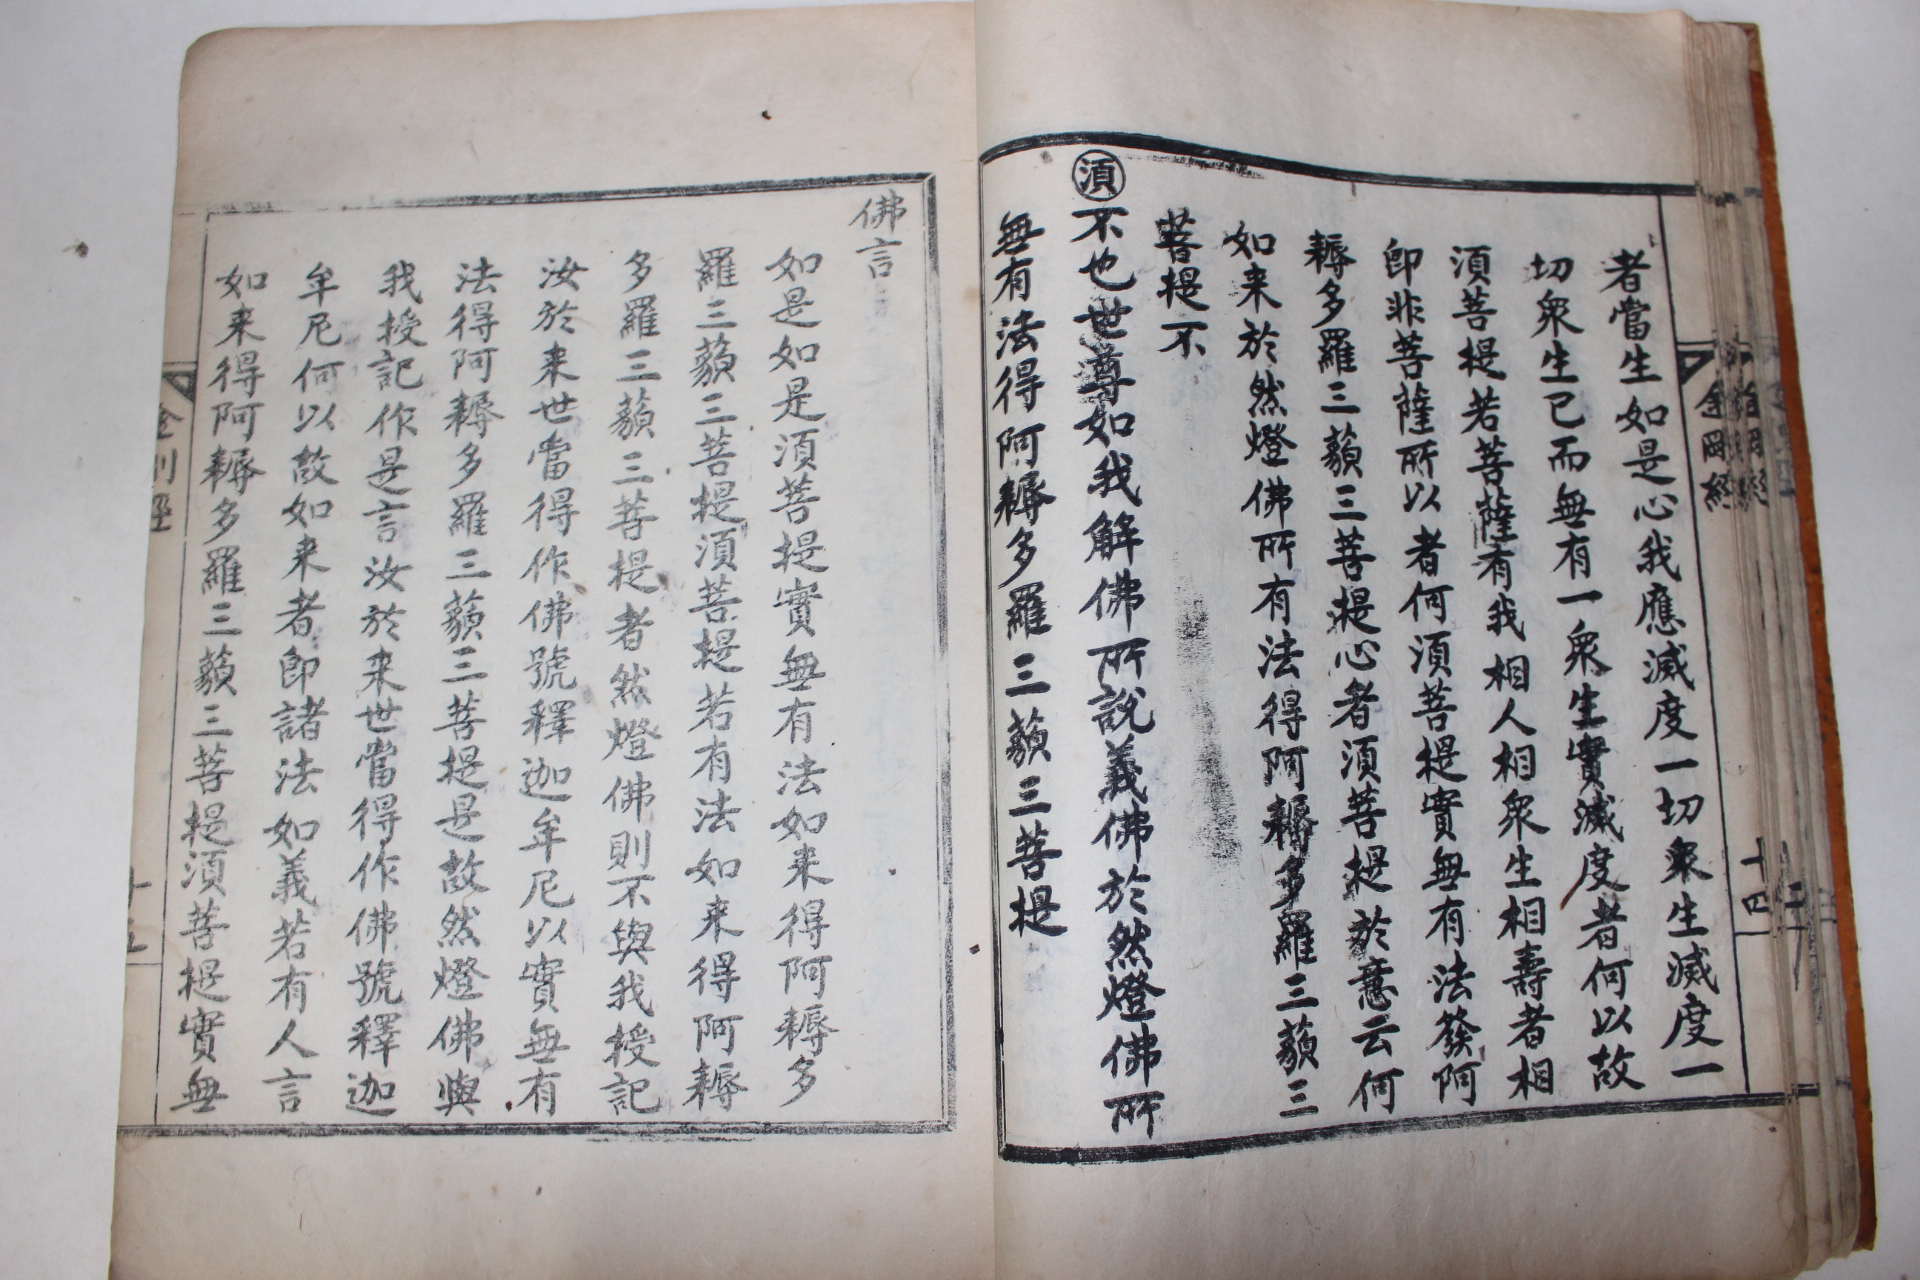 者當生如是心我應滅度一切衆生滅度一
切衆生已而無有一衆生實滅度者何以故
湏菩提若菩薩有我相人相衆生相壽者相
卽非菩薩所以者何湏菩提實無有法發阿
耨多羅三藐三菩提心者湏菩提於意云何
如来於然燈佛所有法得阿耨多羅三藐三
菩提不
湏不也世尊如我解佛所說義佛於然燈佛所
無有法得阿耨多羅三藐三菩提
金岡經
十四
佛言
如是如是湏菩提實無有法如来得阿耨多
羅三藐三菩提湏菩提若有法如来得阿耨
多羅三藐三菩提者然燈佛則不與我授記
汝於来世當得作佛號釋迦牟尼以實無有
法得阿耨多羅三藐三菩提是故然燈佛與
我授記作是言汝於来世當得作佛號釋迦
牟尼何以故如来者卽諸法如義若有人言
如来得阿耨多羅三藐三菩提湏菩提實無